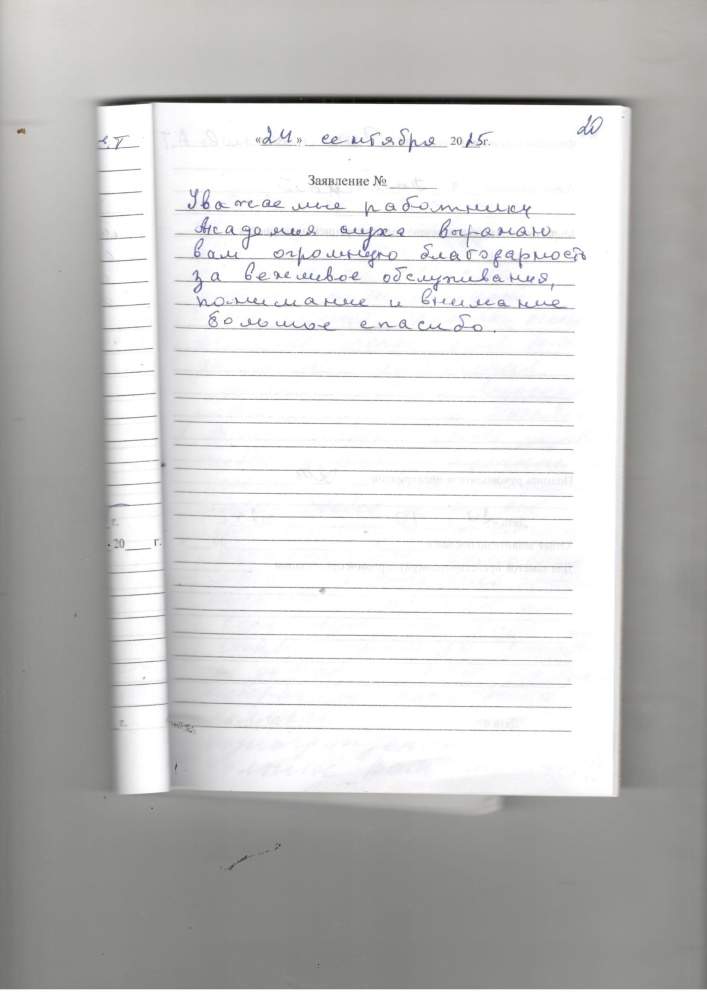 20
«24» сентября 2025г.
Заявление №
Уважаемые работники
Академия слуха выражаю
вам огромную благодарность
за вежливое обслуживания,
понимание и внимание
большое спасибо.
г.
20 г.
г.